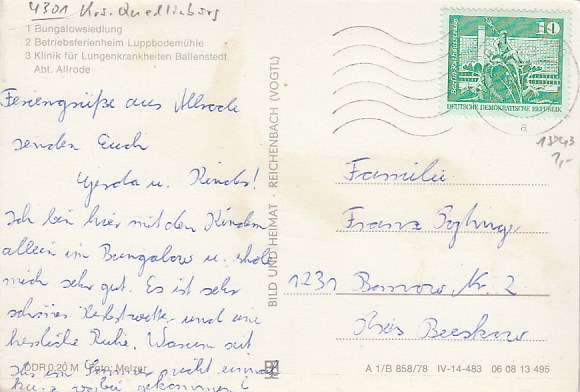 4301 Krs. Quedlinburg
1 Bungalowsiedlung
2 Betriebsferienheim Luppbodemühle
3 Klinik für Lungenkrankheiten Ballenstedt
Abt. Allrode
Feriengrüße aus Allrode
senden Euch
Gerda u. Kinder!
Ich bin hier mit den Kindern
allein im Bungalow u. erhole
mich sehr gut. Es ist sehr
schönes Herbstwetter und eine
herrliche Ruhe. Warum seid
Ihr im Sommer nicht einmal
kurz vorbei gekommen?
DDR 0,20 M Foto: Melzer
BILD UND HEIMAT · REICHENBACH (VOGTL)
10
DEUTSCHE DEMOKRATISCHE REPUBLIK
a
1,-
Familie
Franz
1231 Nr. 2
Kreis Beeskow
A 1/B 858/78 IV-14-483 06 08 13 495